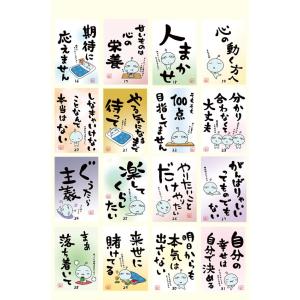 心の動く方へ
人まかせ
甘いものは
心の
栄養
期待に
応えません
分かり
合えなくて
大丈夫
そもそも
100点
目指してません
やる気になるまで
待て
しなきゃいけない
ことなんて
本当はない
がんばらなく
ても
ない
やりたいこと
だけ
やりたい
楽して
くらし
たい
ぐうたら
主義
自分の
幸せは
自分で決める
明日からも
本気は
出さない
来世に
賭けてる
まあ
落ち着いて